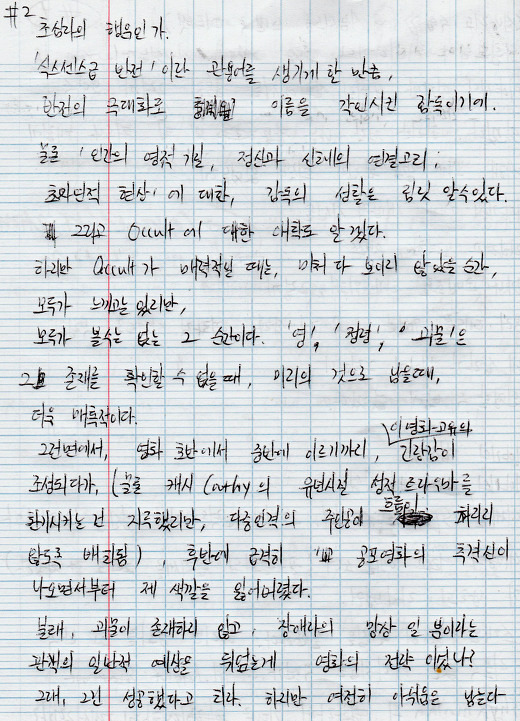 #2
초심자의 행운인가.
'식스센스급 반전' 이란 관용어를 생기게 한 만큼,
반전의 극대화로 이름을 각인시킨 감독이기에.
물론 '인간의 영적 기질, 정신과 신체의 연결고리,
초자연적 현상'에 대한, 감독의 성찰은 림짓 알수있다.
그리고 Occult에 대한 애착도 알겠다.
하지만 Occult가 매력적일 때는, 미처 다 보이지 않았을 순간,
모두가 느끼고는 있지만,
모두가 볼수는 없는 그 순간이다. '영', '정령', '괴물'은
그 존재를 확인할 수 없을때, 미지의 것으로 남을때,
더욱 매혹적이다.
그런면에서, 영화 초반에서 중반에 이르기까지, 이영화 고유의 긴장감이
조성되다가, (물론 캐시 Cathy의 유년시절 성적 트라우마를
환기시키는 건 지루했지만, 다중인격의 주인공이 흐름이 쳐지지
않도록 배회함), 후반에 급격히 공포영화의 추격신이
나오면서부터 제 색깔을 잃어버렸다.
본래, 괴물이 존재하지 않고, 장애자의 망상 일 뿐이라는
관객의 일반적 예상을 뒤엎는게 영화의 전략 이었나?
그래, 그건 성공했다고 치자. 하지만 여전히 아쉬움은 남는다